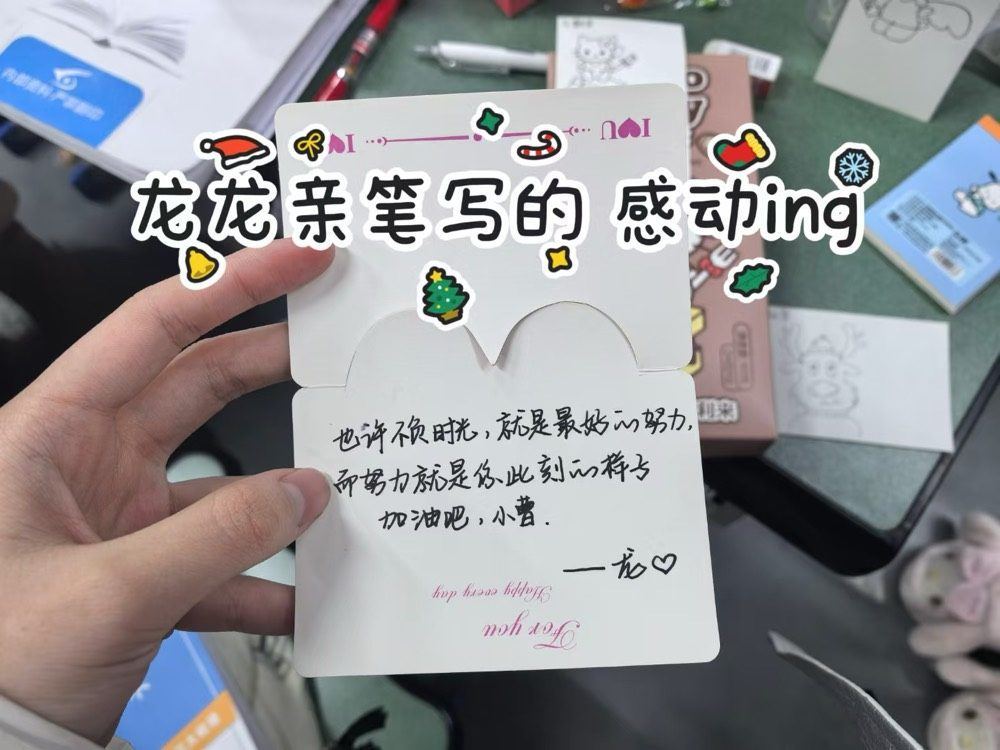 内部资料 严禁翻印
I♥U
I♥U
龙龙亲笔写的 感动ing
也许不负时光,就是最好的努力,
而努力就是你此刻的样子
加油吧,小曹.
——龙♡
Happy every day
For you
利来